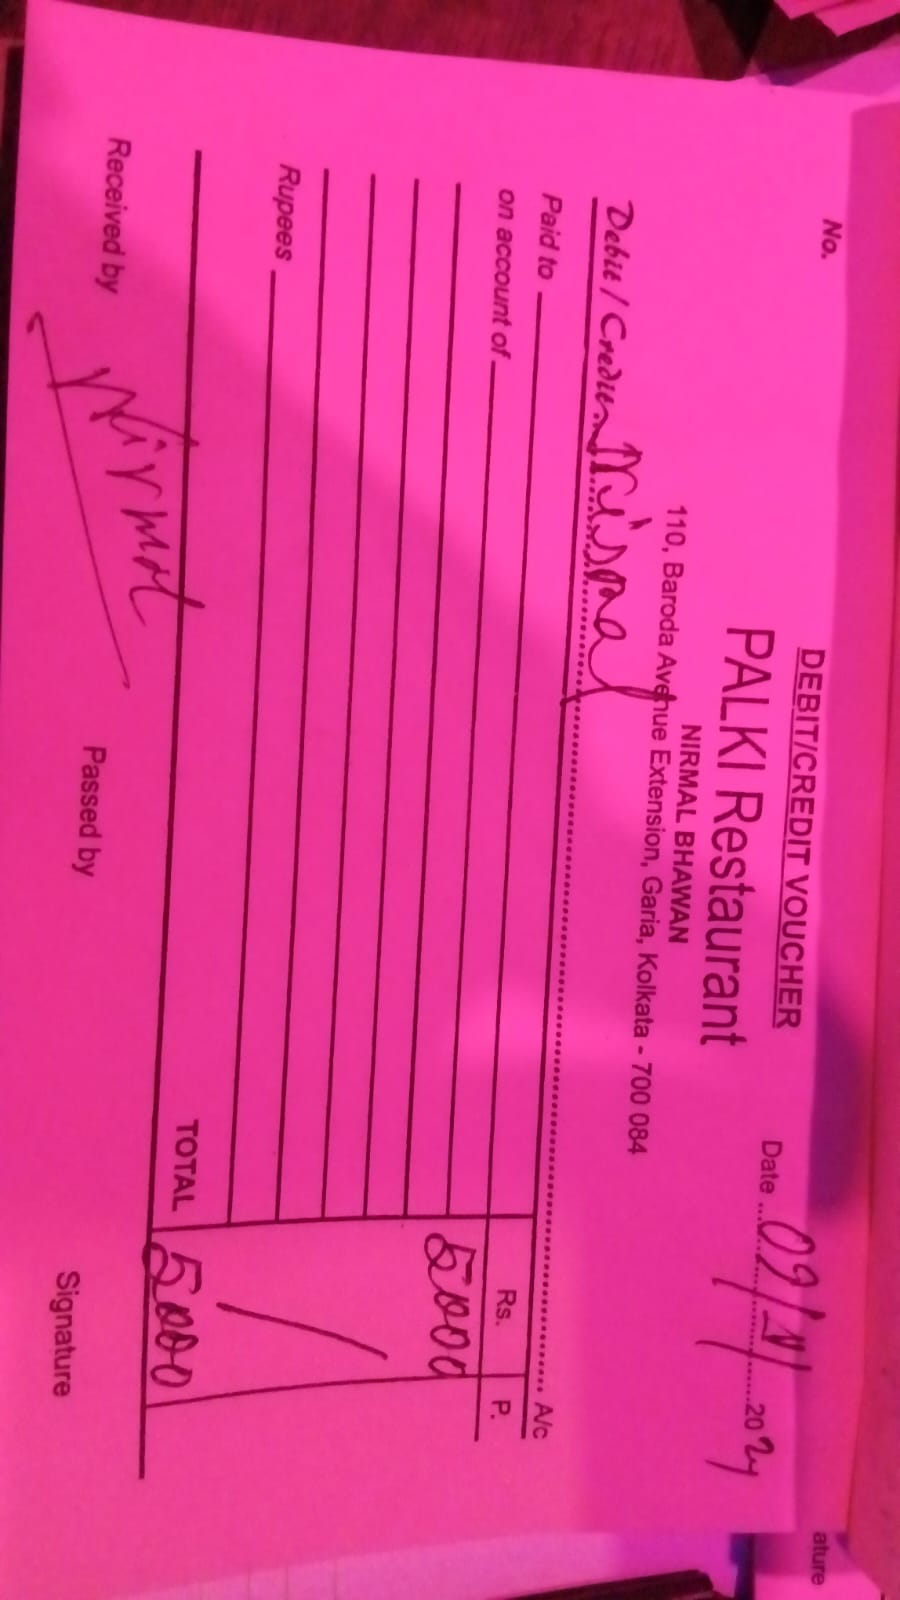 No.
DEBIT/CREDIT VOUCHER
PALKI Restaurant
NIRMAL BHAWAN
110, Baroda Avenue Extension, Garia, Kolkata - 700 084
Date ... 09/ /2024
Debit / Credit Nirmal A/c
Paid to
Rs. P.
on account of
5000
Rupees
TOTAL 5000
Received by Nirmal
Passed by
Signature
ature